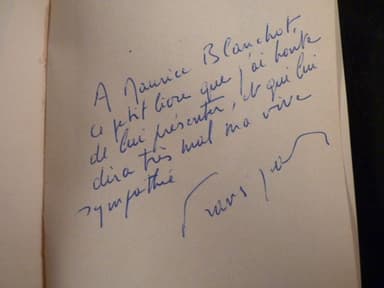 A Maurice Blanchot,
ce petit livre que j'ai honte
de lui présenter, et qui lui
dira très mal ma vive
sympathie